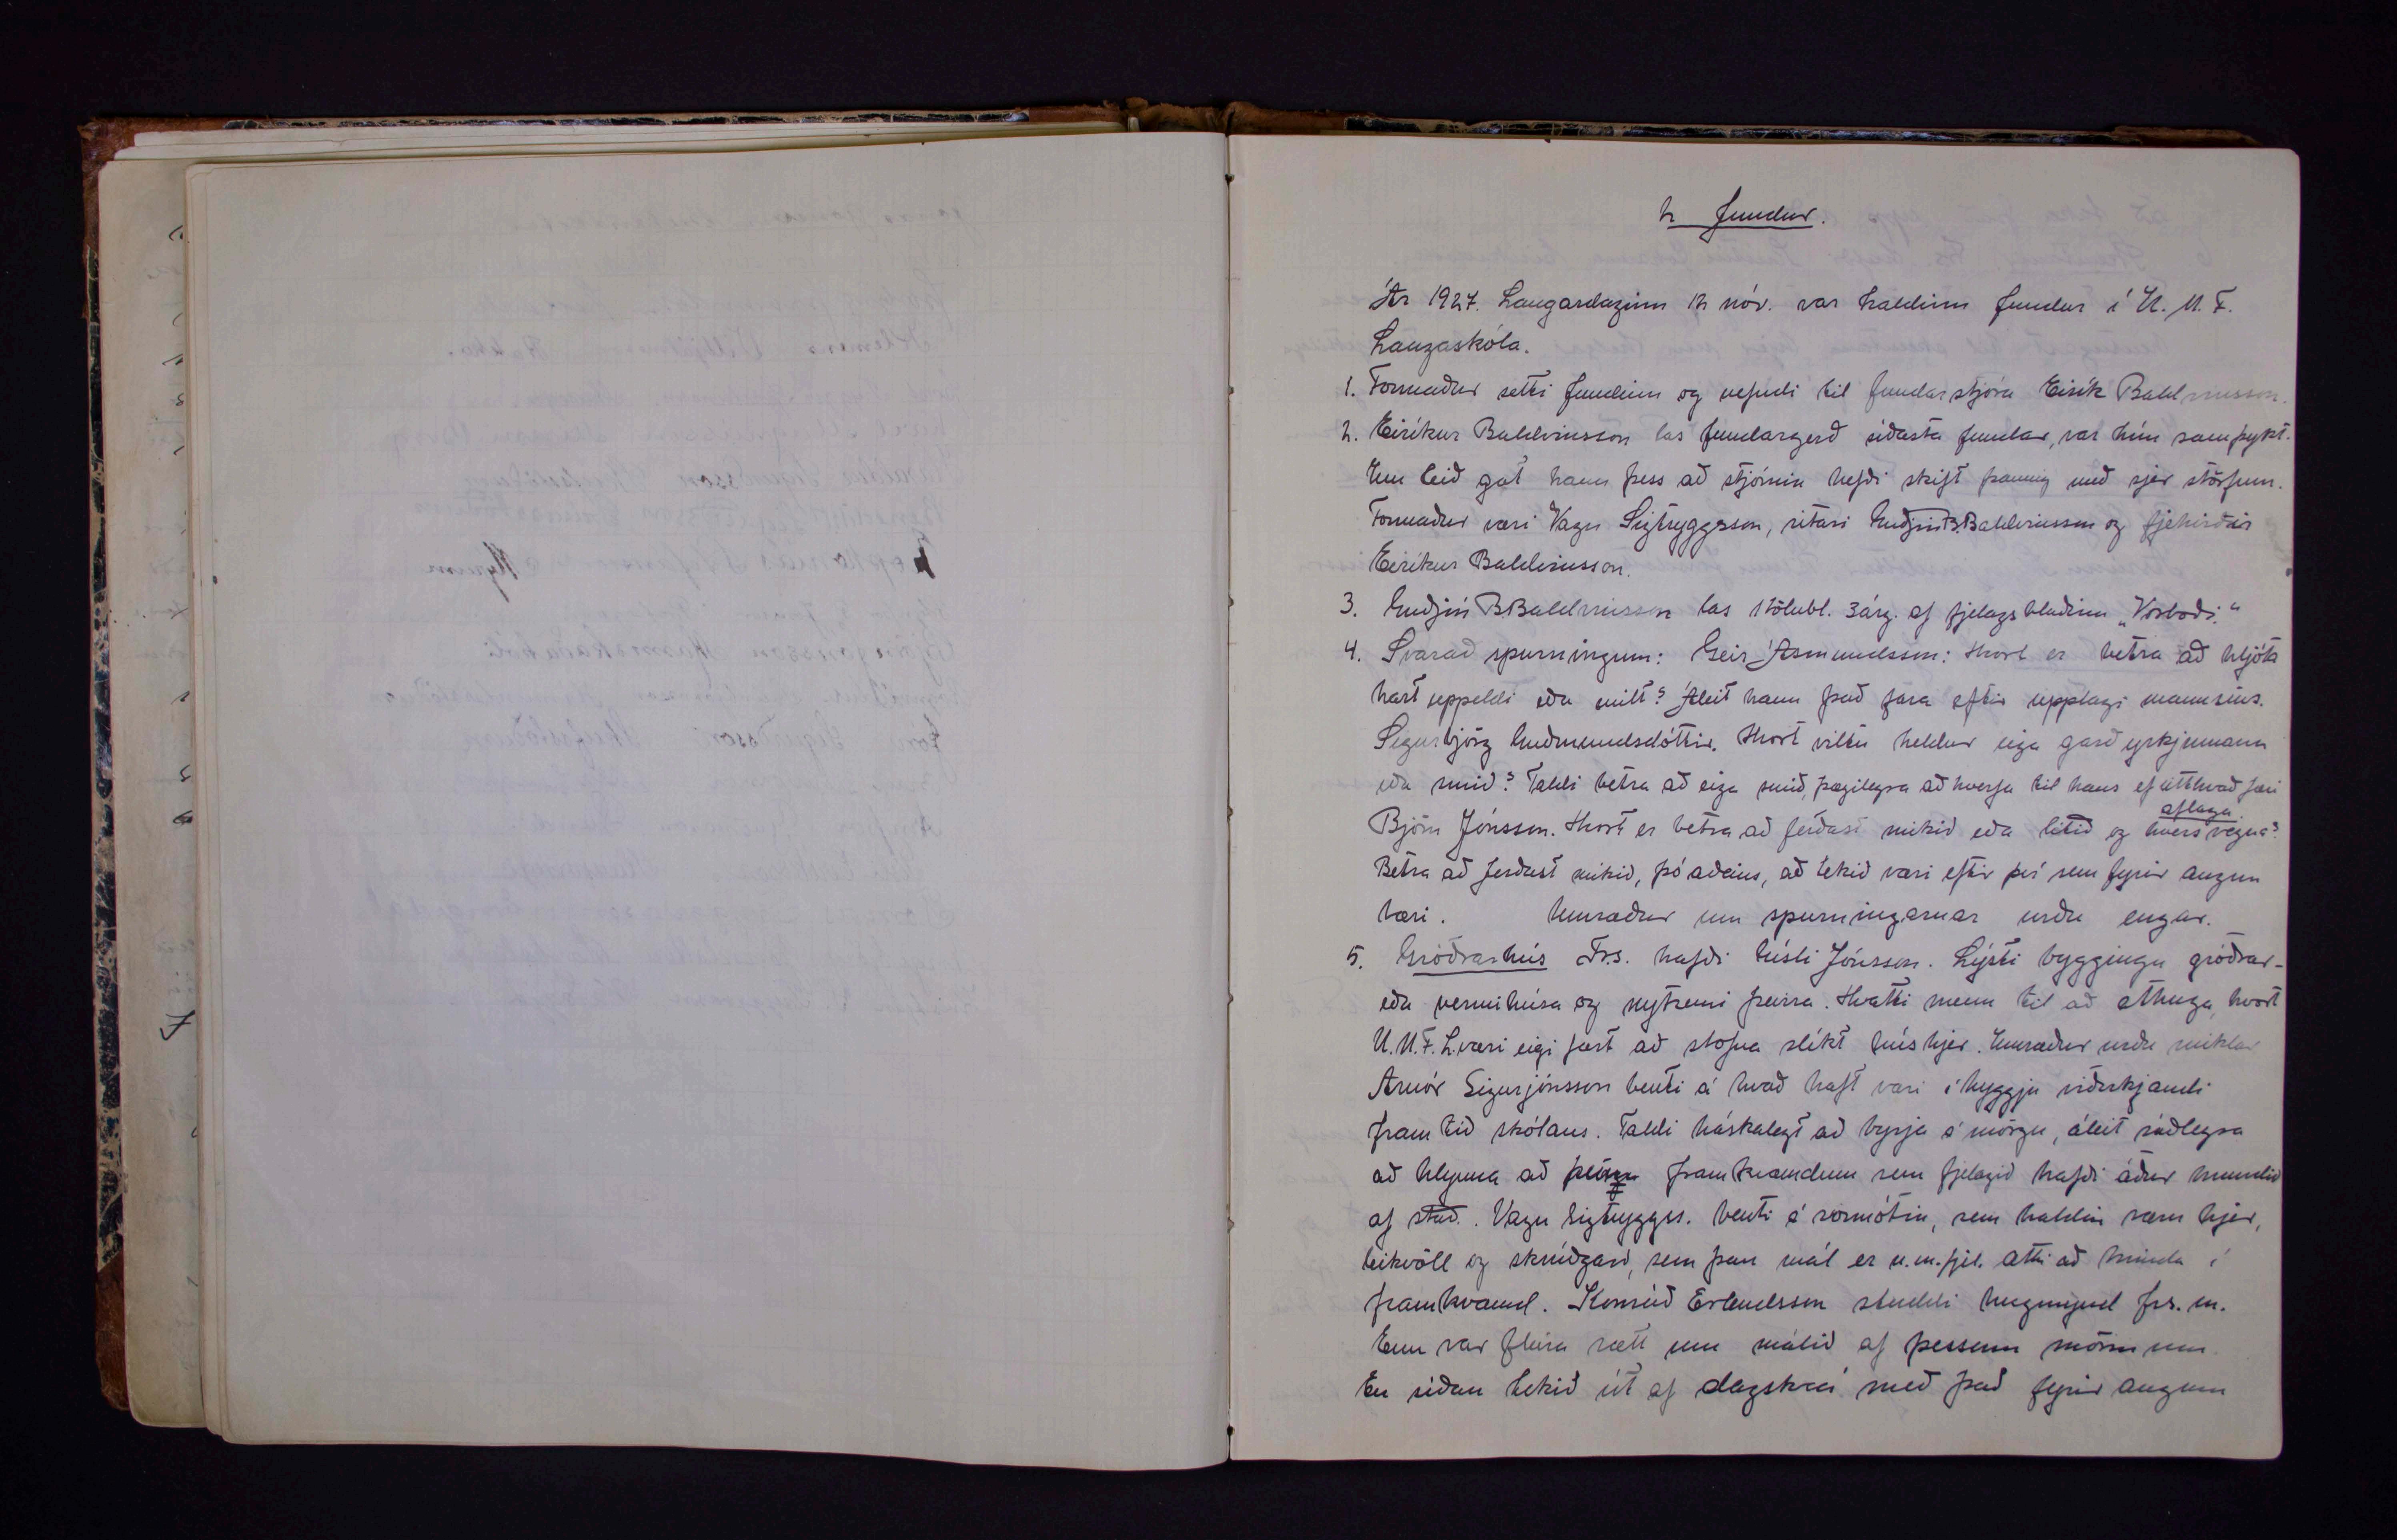 2 fundur.
Ár 1927. Laugardaginn 12 nóv. var haldinn fundur í U. M. F.
Laugaskóla.
1. Formaður setti fundinn og nefndi til fundarstjóra Eirík Baldvinsson.
2. Eiríkur Baldvinsson las fundargerð síðasta fundar, var hún samþykt.
Um leið gat hann þess að stjórnin hefði skift þannig með sjer störfum.
Formaður væri Vagn Sigtryggsson, ritari Guðjón B. Baldvinsson og fjehirðir
Eiríkur Baldvinsson.
3. Guðjón B. Baldvinsson las 1 tölubl. 3 árg. af fjelagsblaðinu „Vorboði."
4. Svarað spurningum: Geir Ásmundsson: Hvort er betra að hljóta
hart uppeldi eða milt? Áleit hann það fara eftir upplagi mannsins.
Sigurbjörg Guðmundsdóttir. Hvort viltu heldur eiga garðyrkjumann
eða smið? Taldi betra að eiga smið, þægilegra að hverfa til hans ef eitthvað færi
aflaga.
Björn Jónsson. Hvort er betra að ferðast mikið eða lítið og hvers vegna?
Betra að ferðast mikið, þó aðeins, að tekið væri eftir því sem fyrir augun
bæri. Umræður um spurningarnar urðu engar.
5. Gróðrarhús Frs. hafði Gísli Jónsson. Lýsti byggingu gróðrar-
eða vermihúsa og nytsemi þeirra. Hvatti menn til að athuga, hvort
U.M.F.L. væri eigi fært að stofna slíkt hús hjer. Umræður urðu miklar
Arnór Sigurjónsson benti á hvað haft væri í hyggju viðvikjandi
framtíð skólans. Taldi háskalegt að byrja á mörgu, áleit ráðlegra
að hlynna að þeim framkvæmdum sem fjelagið hafði áður hrundið
af stað. Vagn Sigtryggss. benti á vormótin, sem haldin væru hjer,
leikvöll og skrúðgarð, sem þau mál er u.m.fjel. ætti að hrinda í
framkvæmd. Konráð Erlendsson studdi hugmynd frs. m.
Enn var fleira rætt um málið af þessum mönnum.
En síðan tekið út af dagskrá með það fyrir augum